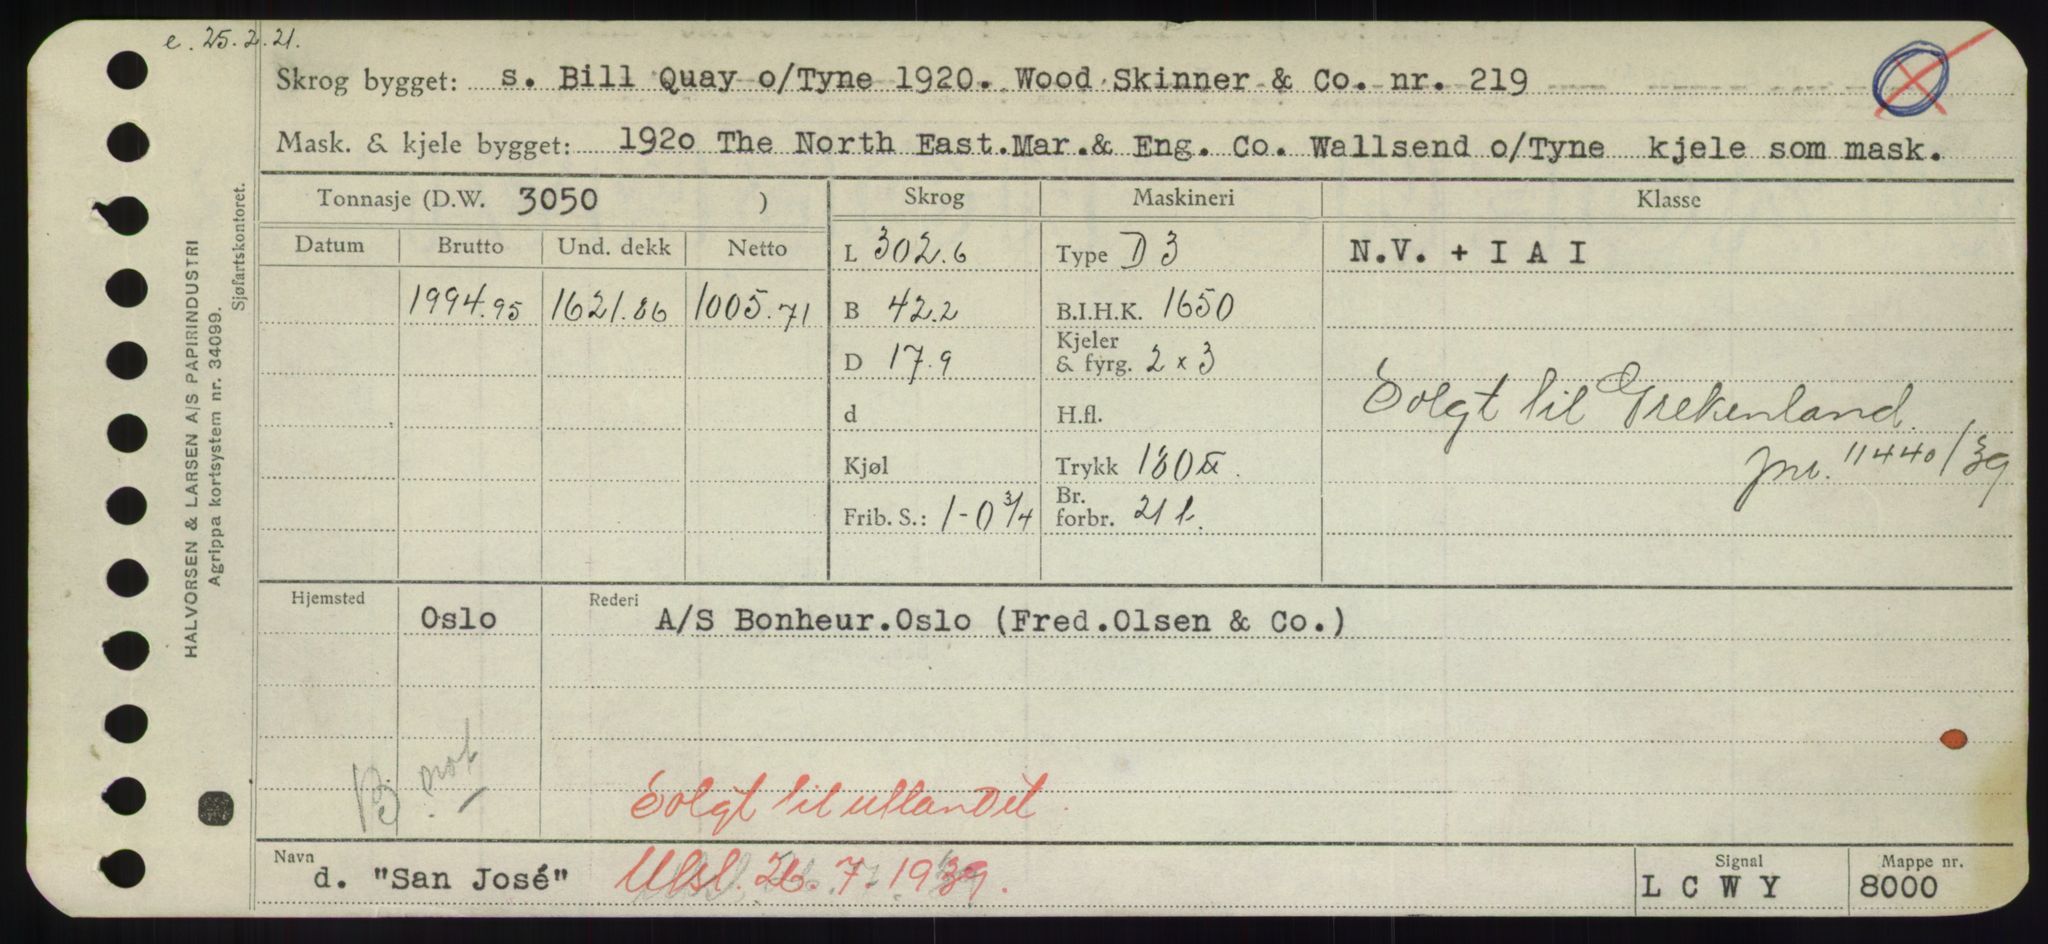 e. 25.2.21.
Skrog bygget: s. Bill Quay o/Tyne 1920. Wood Skinner & Co. nr. 219
Mask. & kjele bygget: 192o The North East.Mar.& Eng. Co. Wallsend o/Tyne kjele som mask.
Tonnasje (D.W. 3050 ) Skrog Maskineri Klasse
Datum Brutto Und. dekk Netto L 302.6 Type D 3 N.V. + I A I
1994.95 1621.86 1005.71 B 42.2 B.I.H.K. 1650
D 17.9 Kjeler & fyrg. 2 x 3
d H.fl. Solgt til Grekenland.
Kjøl Trykk 180 jnr. 11440/39
Frib. S.: 1-0 3/4 Br. forbr. 21 t.
Hjemsted Oslo Rederi A/S Bonheur.Oslo (Fred.Olsen & Co.)
Solgt til utlandet
Navn d. "San José" Utsl. 26.7.1939. Signal L C W Y Mappe nr. 8000
HALVORSEN & LARSEN A/S PAPIRINDUSTRI
Agrippa kortsystem nr. 34099.
Sjøfartskontoret.